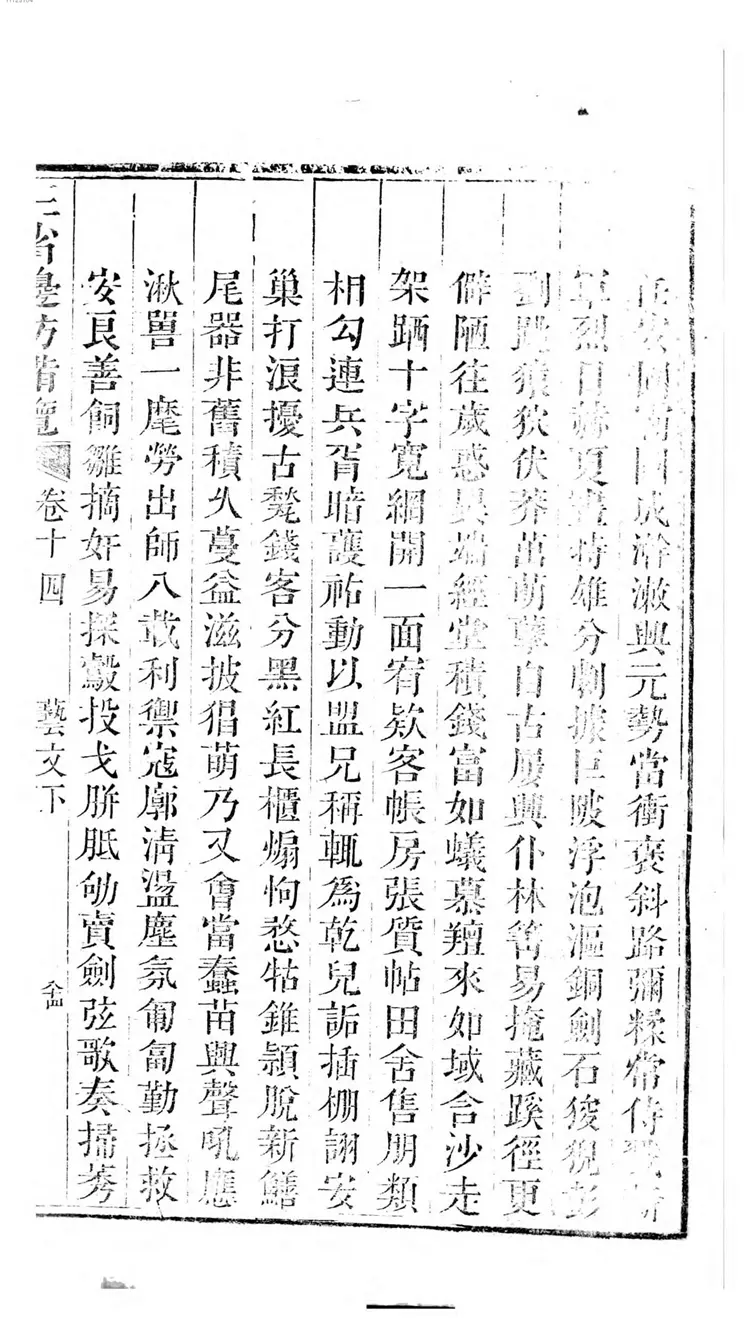 固成許漵興元勢當衝褒斜路彌糅常侍
軍烈日赫夏畫特雄分剬據巨陂浮泡漚銅劍石狻猊彭
劉甦獠狄伏莽茁萌孽自古屢興仆林箐易掩藏蹊徑更
僻陋往歲惑異端經堂積錢富如蟻慕羶來如域含沙走
架跴十字寬網開一面宥欵客帳房張質帖田舍售朋類
相勾連兵胥暗護祐動以盟兄稱輒為乾兒詬插棚詡安
巢打浪擾古甃錢客分黑紅長櫃煽恂愗牯錐穎脫新鱔
尾器非舊積久蔓益滋披猖萌乃又會當蠢苗興聲吼應
湫罶一麾勞出師八載利禦寇廓清盪塵氛匍匐勤拯救
安良善飼雛摘奸易探鷇投戈胼胝劬賣劍弦歌奏掃莠
三省邊防備覽 卷十四 藝文下 仐